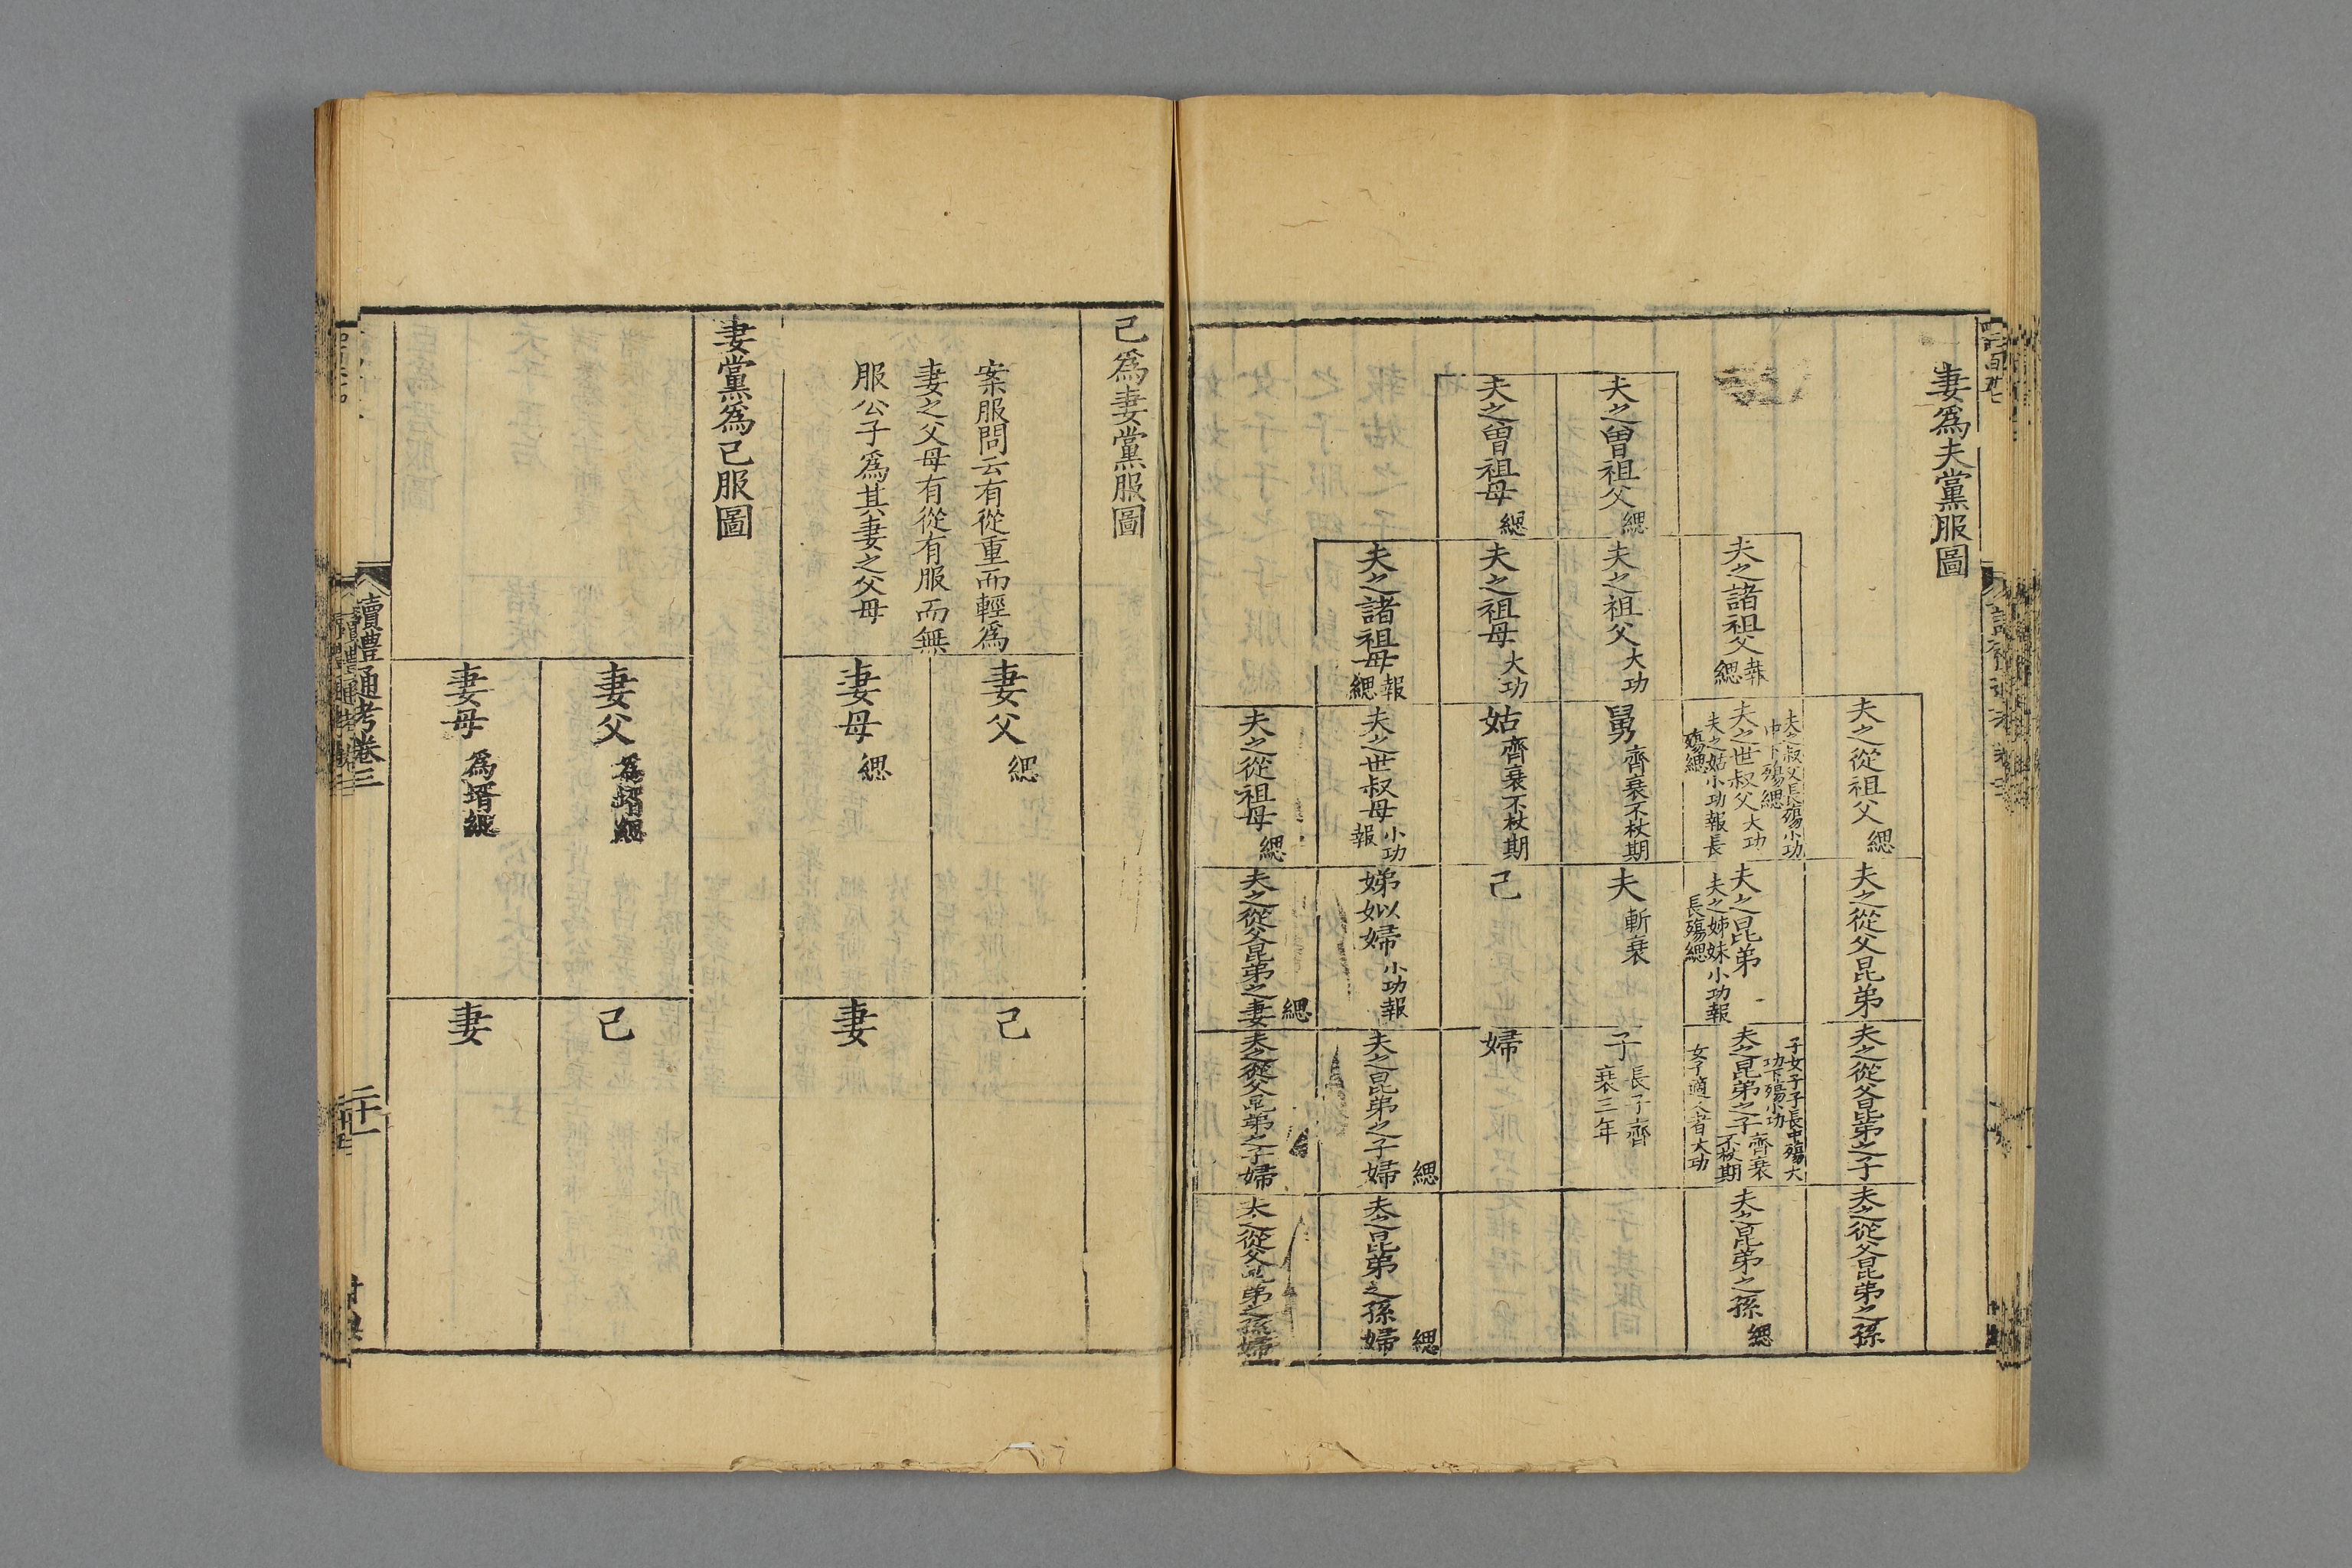 妻爲夫黨服圖
夫之從祖父緦
夫之從父昆弟
夫之從父昆弟之子
夫之從父昆弟之孫
夫之諸祖父
緦
夫之叔父長殤小功
中下殤緦
夫之世叔父大功
夫之姑小功報長
殤緦
夫之昆弟
夫之姊妹小功報
長殤緦
子女子子長中殤大
功下殤小功
夫之昆弟之子齊衰
不杖期
女子適人者大功
夫之昆弟之孫緦
夫之曾祖父緦
夫之祖父大功
舅齊衰不杖期
夫斬衰
子長子齊
衰三年
夫之曾祖母緦
夫之祖母大功
姑齊衰不杖期
己
婦
夫之諸祖母報
緦
夫之世叔母小功
報
娣姒婦小功報
夫之昆弟之子婦緦
夫之昆弟之孫婦緦
夫之從祖母緦
夫之從父昆弟之妻緦
夫之從父昆弟之子婦
夫之從父昆弟之孫婦
己爲妻黨服圖
案服問云有從重而輕爲
妻之父母有從有服而無
服公子爲其妻之父母
妻父緦
己
妻母緦
妻
妻黨爲己服圖
妻父爲壻緦
己
妻母爲壻緦
妻
讀禮通考卷三
二十一